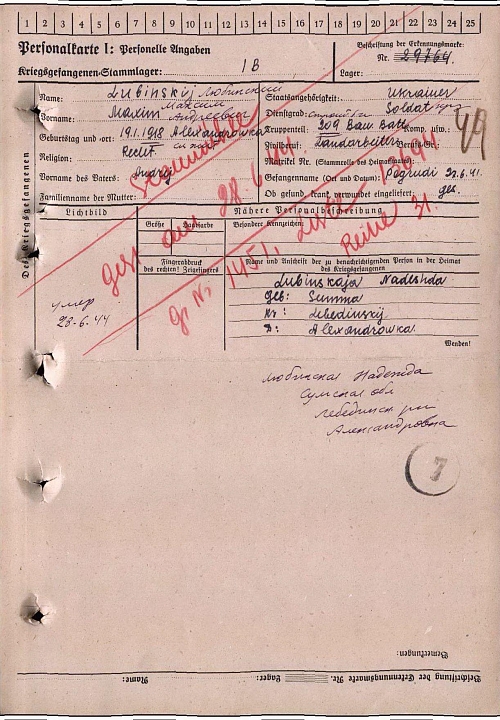 1 2 3 4 5 6 7 8 9 10 11 12 13 14 15 16 17 18 19 20 21 22 23 24 25
Personalkarte I: Personelle Angaben
Kriegsgefangenen-Stammlager: I B
Beschriftung der Erkennungsmarke:
Nr. 29764.
Lager:
Des Kriegsgefangenen
Name: Lubinskij Любинский
Vorname: Maxim Максим Андреевич
Geburtstag und -ort: 19.1.1918 Alexandrowka
Religion: Recht
Vorname des Vaters: Andrej
Familienname der Mutter:
Staatsangehörigkeit: Ukrainer
Dienstgrad: Soldat
Truppenteil: 209 Bau Batl. Komp. usw.:
Zivilberuf: Landarbeiter Berufs-Gr.:
Matrikel Nr. (Stammrolle des Heimatstaates):
Gefangennahme (Ort und Datum): 22.6.41.
Ob gesund, krank, verwundet eingeliefert: ges.
49
Lichtbild
Nähere Personalbeschreibung
Größe
Haarfarbe
Besondere Kennzeichen:
Fingerabdruck
des rechten! Zeigefingers
gest. am 28.6.44
Gr. Nr. 1451, Liste
Reihe 31.
Name und Anschrift der zu benachrichtigenden Person in der Heimat
des Kriegsgefangenen
Lubinskaja Nadeshda
Geb: Summa
Kr: Lebedinskij
D: Alexandrowka
Wenden!
умер
28-6-44
Любинская Надежда
Сумская обл
Лебединск рн
Александровка
7
Bemerkungen:
Beschriftung der Erkennungsmarke Nr. Lager: Name: